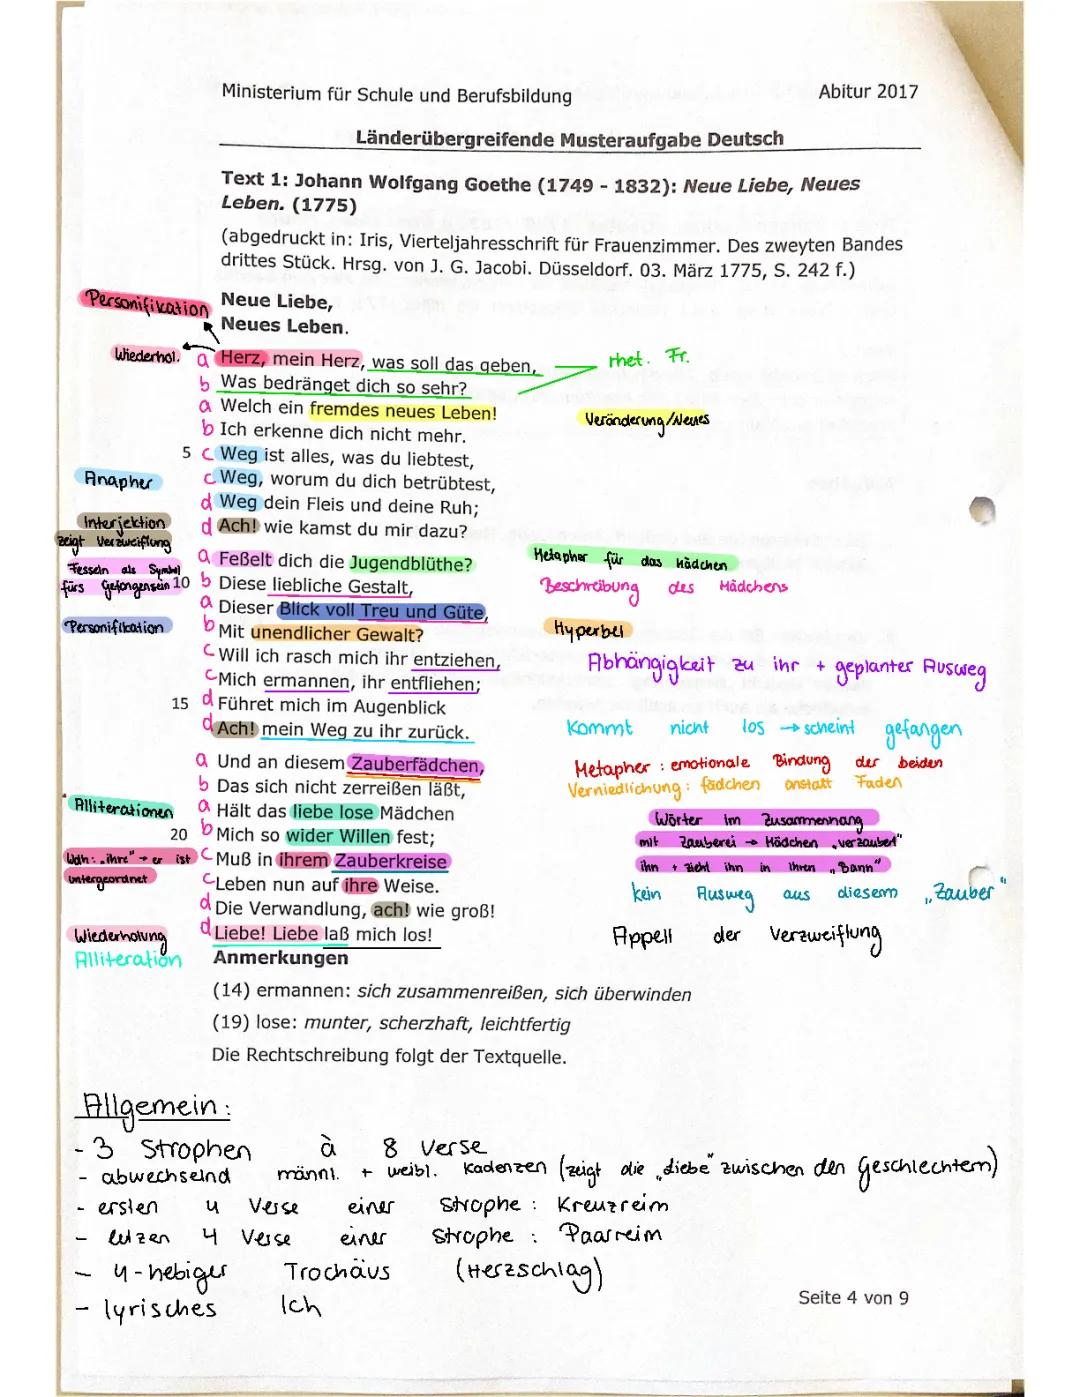 Ministerium für Schule und Berufsbildung Abitur 2017
Länderübergreifende Musteraufgabe Deutsch
Text 1: Johann Wolfgang Goethe (1749 - 1832): Neue Liebe, Neues
Leben. (1775)
(abgedruckt in: Iris, Vierteljahresschrift für Frauenzimmer. Des zweyten Bandes
drittes Stück. Hrsg. von J. G. Jacobi. Düsseldorf. 03. März 1775, S. 242 f.)
Personifikation Neue Liebe,
Neues Leben.
Wiederhol. a Herz, mein Herz, was soll das geben, rhet. Fr.
b Was bedränget dich so sehr?
a Welch ein fremdes neues Leben! Veränderung/Neues
b Ich erkenne dich nicht mehr.
5 c Weg ist alles, was du liebtest,
Anapher c Weg, worum du dich betrübtest,
d Weg dein Fleis und deine Ruh;
Interjektion d Ach! wie kamst du mir dazu?
zeigt Verzweiflung
a Feßelt dich die Jugendblüthe? Metapher für das Mädchen
Fesseln als Symbol
fürs Gefangensein 10 b Diese liebliche Gestalt, Beschreibung des Mädchens
a Dieser Blick voll Treu und Güte,
Personifikation b Mit unendlicher Gewalt? Hyperbel
c Will ich rasch mich ihr entziehen, Abhängigkeit zu ihr + geplanter Ausweg
c Mich ermannen, ihr entfliehen;
15 d Führet mich im Augenblick
d Ach! mein Weg zu ihr zurück. Kommt nicht los → scheint gefangen
a Und an diesem Zauberfädchen, Metapher : emotionale Bindung der beiden
b Das sich nicht zerreißen läßt, Verniedlichung : fädchen anstatt Faden
Alliterationen a Hält das liebe lose Mädchen Wörter im Zusammenhang
20 b Mich so wider Willen fest; mit Zauberei → Mädchen „verzaubert"
Wdh: „ihre" → er ist c Muß in ihrem Zauberkreise ihn + zieht ihn in ihren „Bann"
untergeordnet c Leben nun auf ihre Weise. kein Ausweg aus diesem „Zauber"
d Die Verwandlung, ach! wie groß!
Wiederholung d Liebe! Liebe laß mich los! Appell der Verzweiflung
Alliteration Anmerkungen
(14) ermannen: sich zusammenreißen, sich überwinden
(19) lose: munter, scherzhaft, leichtfertig
Die Rechtschreibung folgt der Textquelle.
Allgemein:
- 3 Strophen à 8 Verse
- abwechselnd männl. + weibl. Kadenzen (zeigt die „Liebe" zwischen den Geschlechtern)
- ersten 4 Verse einer Strophe : Kreuzreim
- letzen 4 Verse einer Strophe : Paarreim
- 4-hebiger Trochäus (Herzschlag)
- lyrisches Ich
Seite 4 von 9